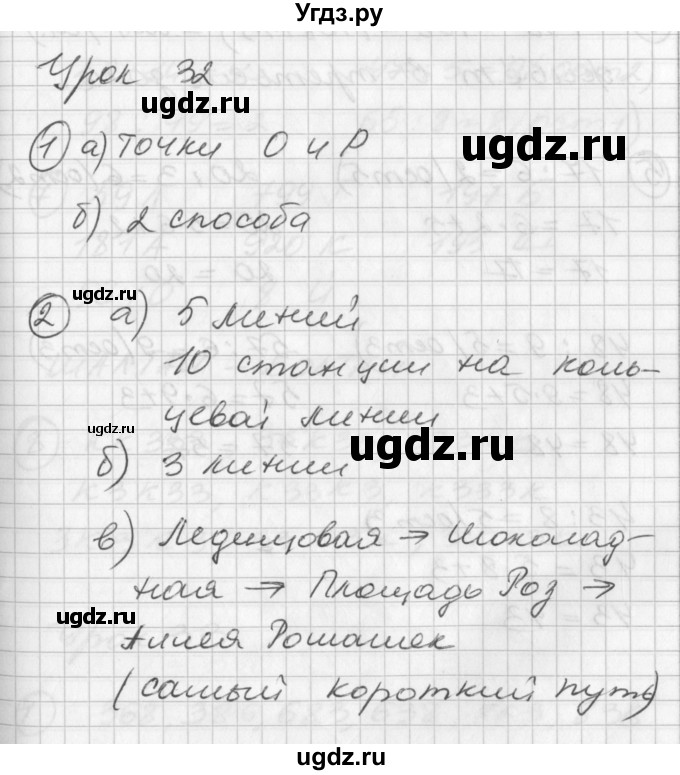 Угдз.ру
Урок 32
ugdz.ru
① а) точки О и Р
ugdz.ru
б) 2 способа
ugdz.ru
② а) 5 линий
10 станции на коль-
цевой линии
ugdz.ru
ugdz.ru
б) 3 линии
в) Леденцовая → Шоколад-
ная → Площадь Роз →
ugdz.ru
Аллея Ромашек
(самый короткий путь)
ugdz.ru
ugdz.ru